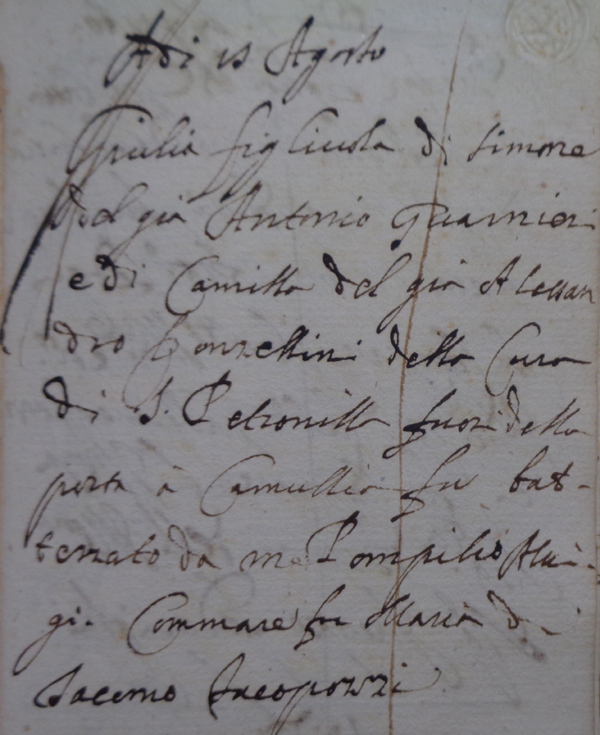 Adi 15 Agosto
Giulia figliuola di Simone
del gia Antonio Guarnieri
e di Camilla del gia Alessan
dro della Cura
di S. Petronilla fuori della
porta à Camullia fu bat-
tezzato da me Pompilio Alui-
gi. Commare fu Maria di
Iacomo Iacopozzi